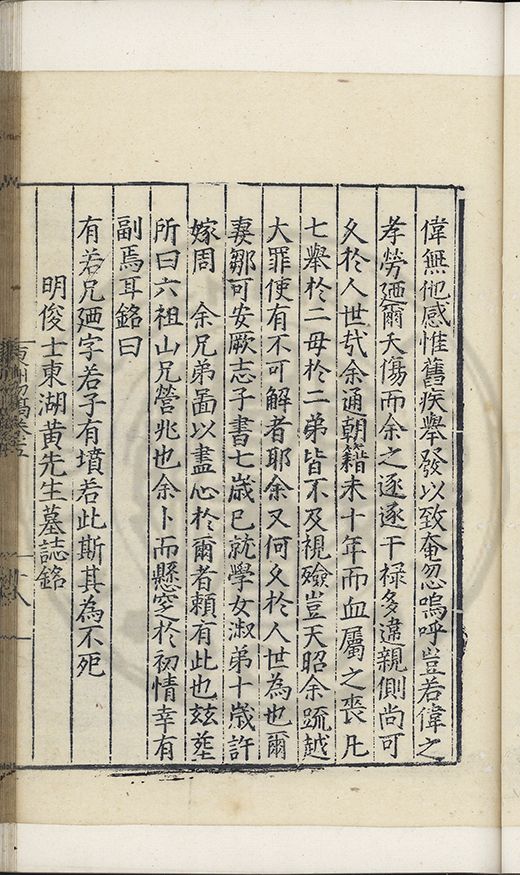 偉無他感惟舊疾舉發以致奄忽嗚呼豈若偉之
孝勞廼爾夭傷而余之逐逐干禄多違親側尚可
久於人世㢤余通朝籍未十年而血屬之喪凡
七舉於二母於二弟皆不及視殮豈天昭余疏越
大罪使有不可解者耶余又何久於人世為也爾
妻鄒可安厥志子書七歲已就學女淑弟十歲許
嫁周 余兄弟啚以盡心於爾者頼有此也兹塟
所曰六祖山兄營兆也余卜而懸窆於初情幸有
副焉耳銘曰
有若兄廼字若子有墳若此斯其為不死
明俊士東湖黄先生墓誌銘